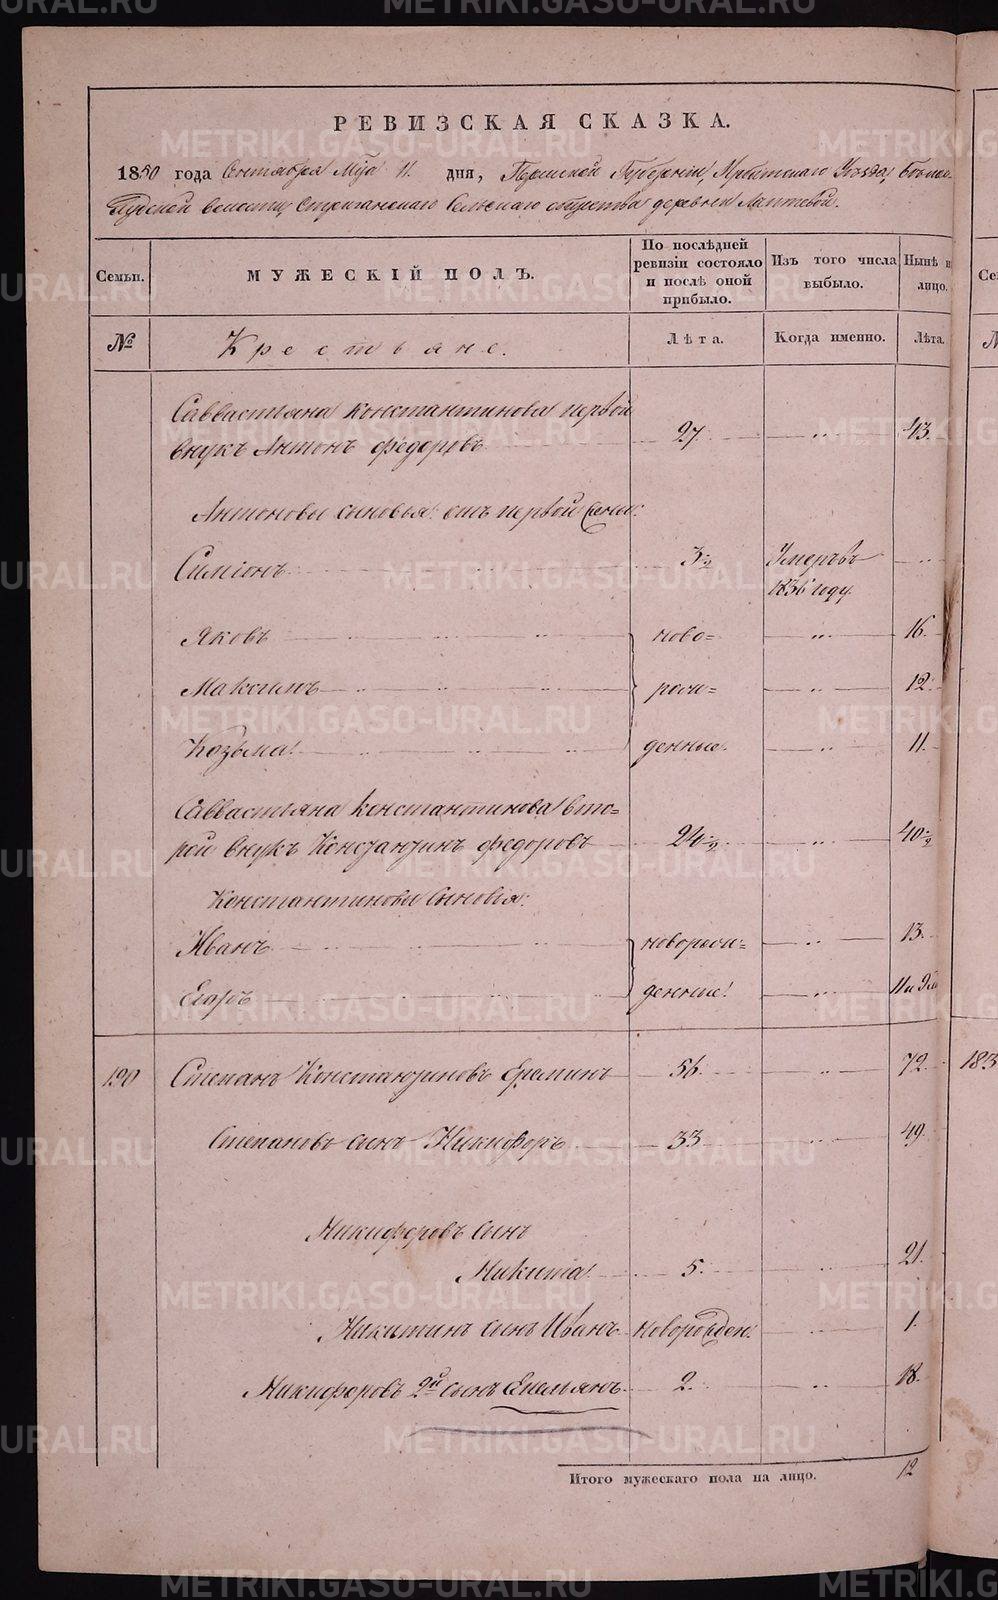 РЕВИЗСКАЯ СКАЗКА.
1850 года Сентября М-ца 11 дня, Пермской Губерніи, Ирбитскаго Уѣзда,
волости, Стриганскаго Сельскаго общества деревни Лаптевой.
Семьи.
МУЖЕСКІЙ ПОЛЪ.
По послѣдней ревизіи состояло и послѣ оной прибыло.
Изъ того числа выбыло.
Нынѣ н лицо.
№
Крестьяне.
Лѣта.
Когда именно.
Лѣта.
Савастьяна Константинова первой
внукъ Антонъ Федоровъ 27. 43.
Антоновы сыновья: отъ первой жены:
Симіонъ 3½ Умеръ въ
1836 году
Яковъ ново= 16.
Максимъ рож= 12.
Козьма денные. 11.
Савастьяна Константинова вто=
рой внукъ Константинъ Федоровъ 24½ 40½
Константиновы сыновья:
Иванъ новорож= 13.
Егоръ денные. 11 и 9 м
190 Степанъ Константиновъ Фреминъ 56. 72.
Степановъ сынъ Никифоръ 33 49.
Никифоровъ сынъ
Никита 5. 21.
Никитинъ сынъ Иванъ новорожден. 1.
Никифоровъ 2й сынъ Емельянъ 2. 18.
Итого мужескаго пола на лицо. 12
183
METRIKI.GASO-URAL.RU